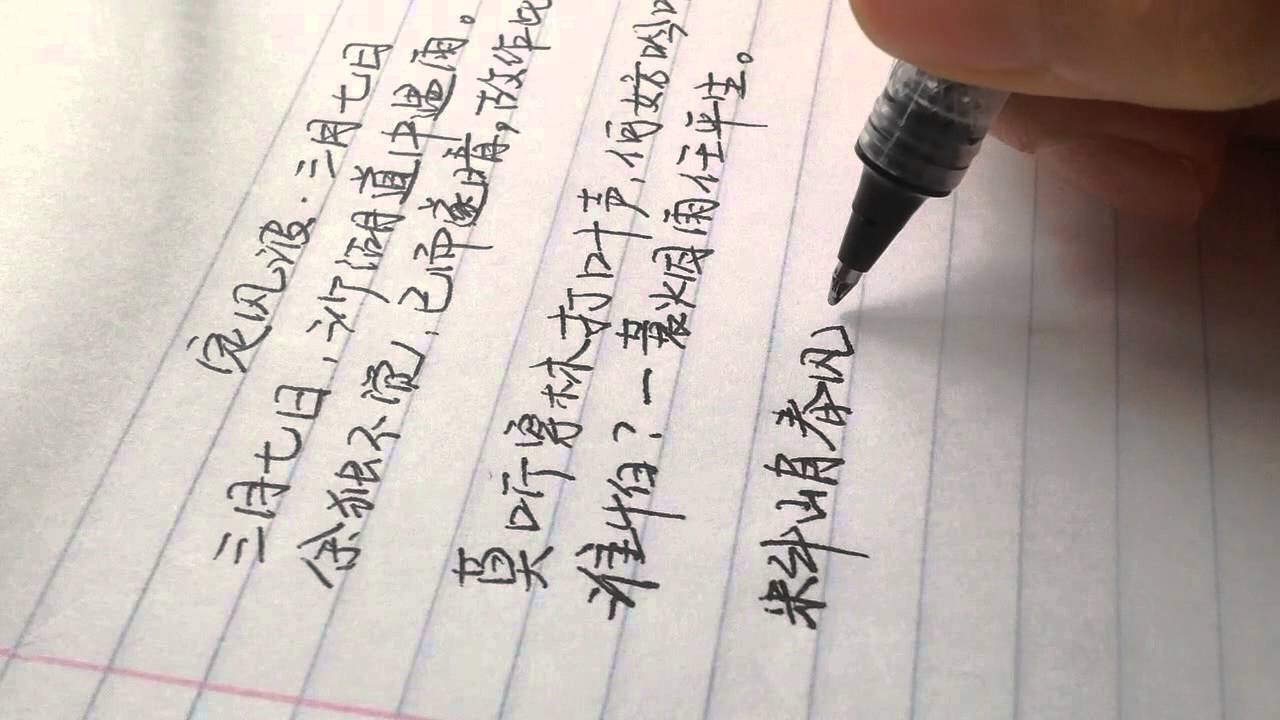 定风波·三月七日
三月七日,沙湖道中遇雨。
余独不觉,已而遂晴。故作此
莫听穿林打叶声,何妨吟
谁怕?一蓑烟雨任平生。
料峭春风